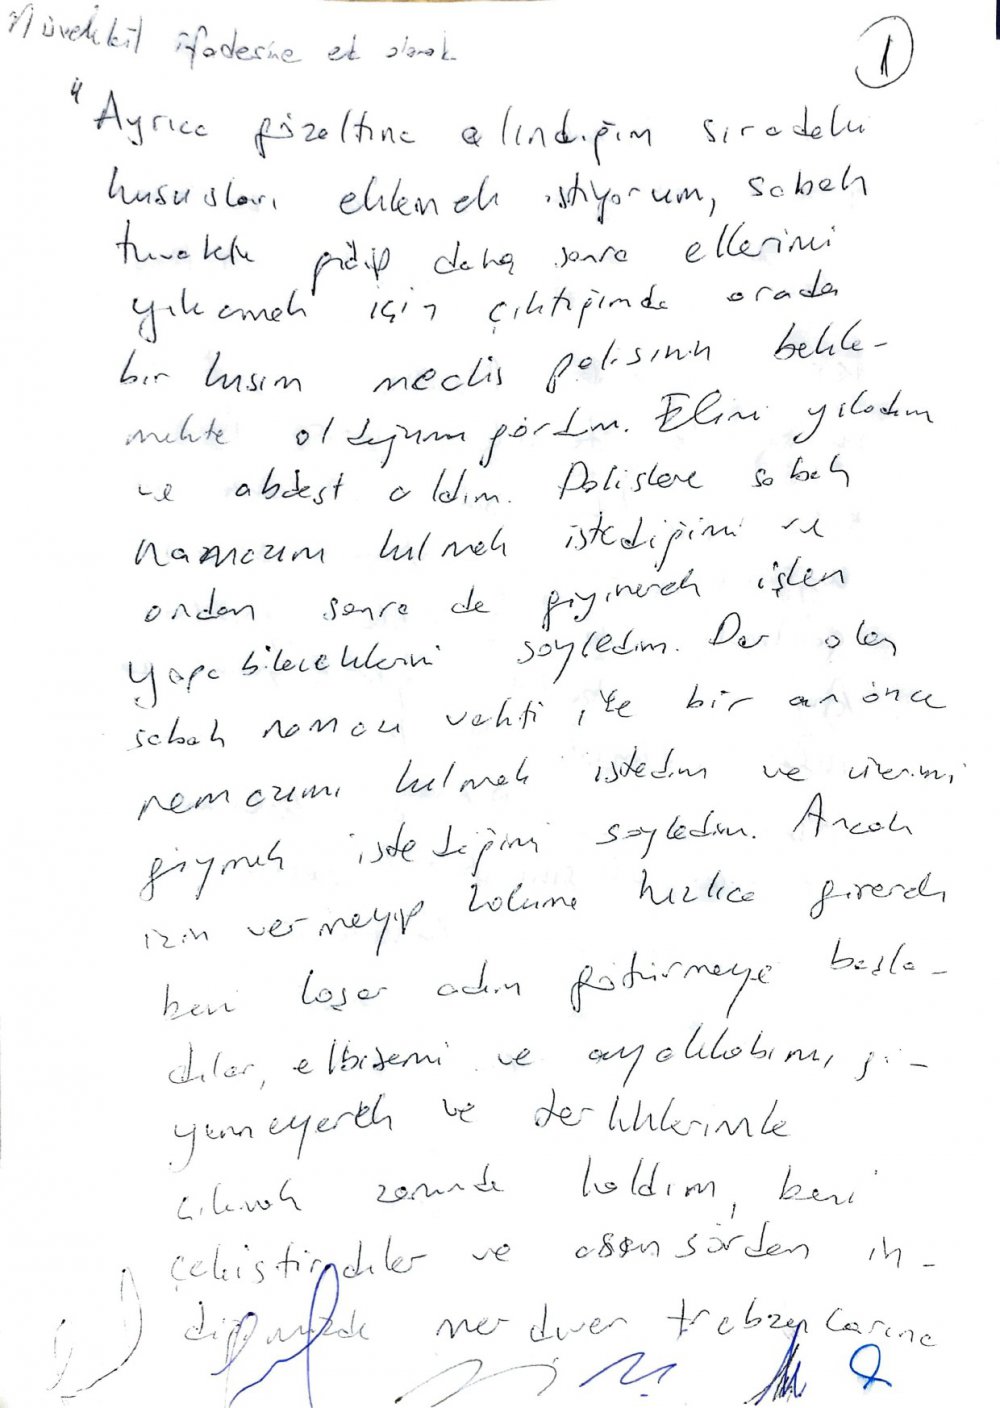 Müvekkil ifadesine ek olarak
1
"Ayrıca gözaltına alındığım sıradaki
hususları eklemek istiyorum, sabah
tuvalete gidip daha sonra ellerimi
yıkamak için çıktığımda orada
bir kısım meclis polisinin bekle-
mekte olduğunu gördüm. Elimi yıkadım
ve abdest aldım. Polislere sabah
namazımı kılmak istediğimi ve
ondan sonra da giyinerek işlem
yapabileceklerini söyledim. Dar olan
sabah namazı vakti ile bir an önce
namazımı kılmak istedim ve üzerimi
giymek istediğimi söyledim. Ancak
izin vermeyip koluma hızlıca girerek
beni koşar adım götürmeye başla-
dılar, elbisemi ve ayakkabımı gi-
yinmeyerek ve terliklerimle
çıkmak zorunda kaldım, beni
çekiştirdiler ve asansörden in-
diğimizde merdiven trabzanlarına